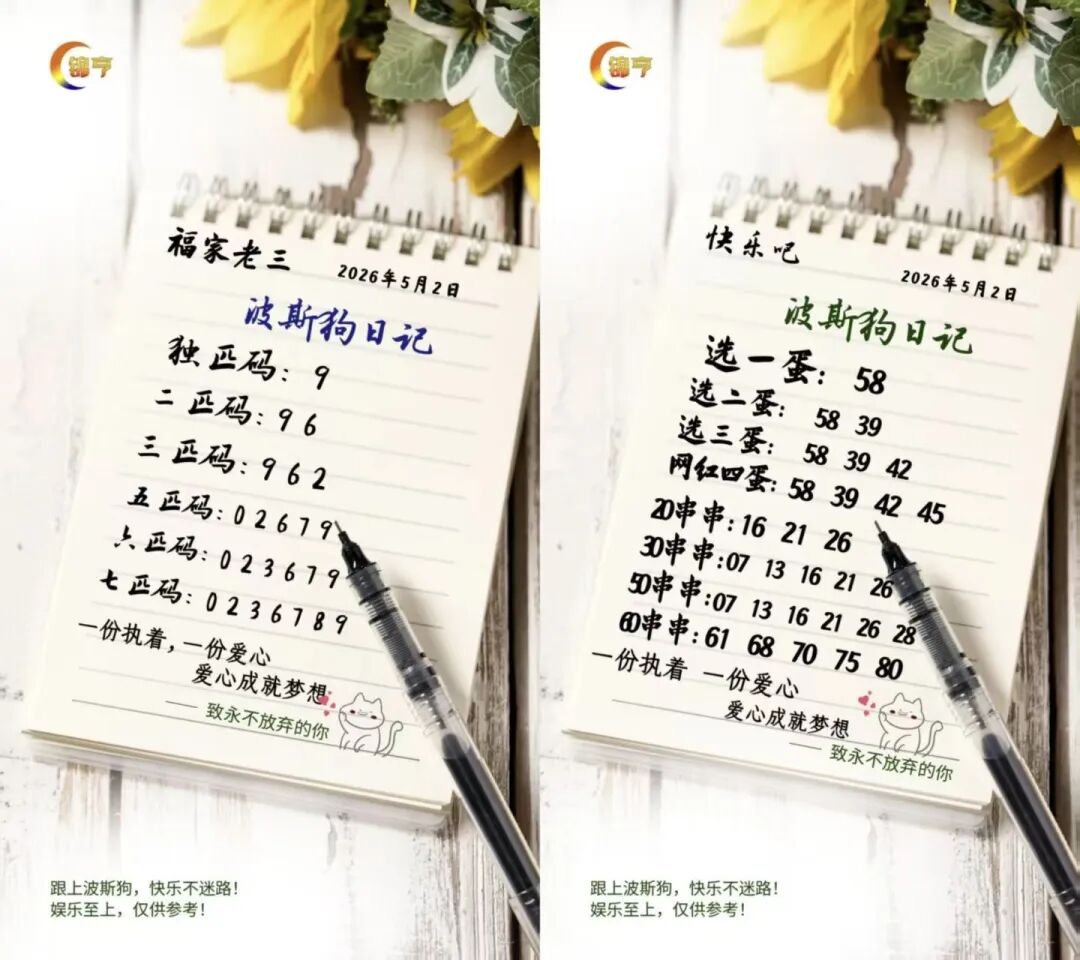 锦亨
福家老三
2026年5月2日
波斯狗日记
独匹码：9
二匹码：96
三匹码：962
五匹码：02679
六匹码：023679
七匹码：0236789
一份执着，一份爱心
爱心成就梦想
—— 致永不放弃的你
跟上波斯狗，快乐不迷路！
娱乐至上，仅供参考！
锦亨
快乐吧
2026年5月2日
波斯狗日记
选一蛋：58
选二蛋：58 39
选三蛋：58 39 42
网红四蛋：58 39 42 45
20串串：16 21 26
30串串：07 13 16 21 26
50串串：07 13 16 21 26 28
60串串：61 68 70 75 80
一份执着 一份爱心
爱心成就梦想
—— 致永不放弃的你
跟上波斯狗，快乐不迷路！
娱乐至上，仅供参考！